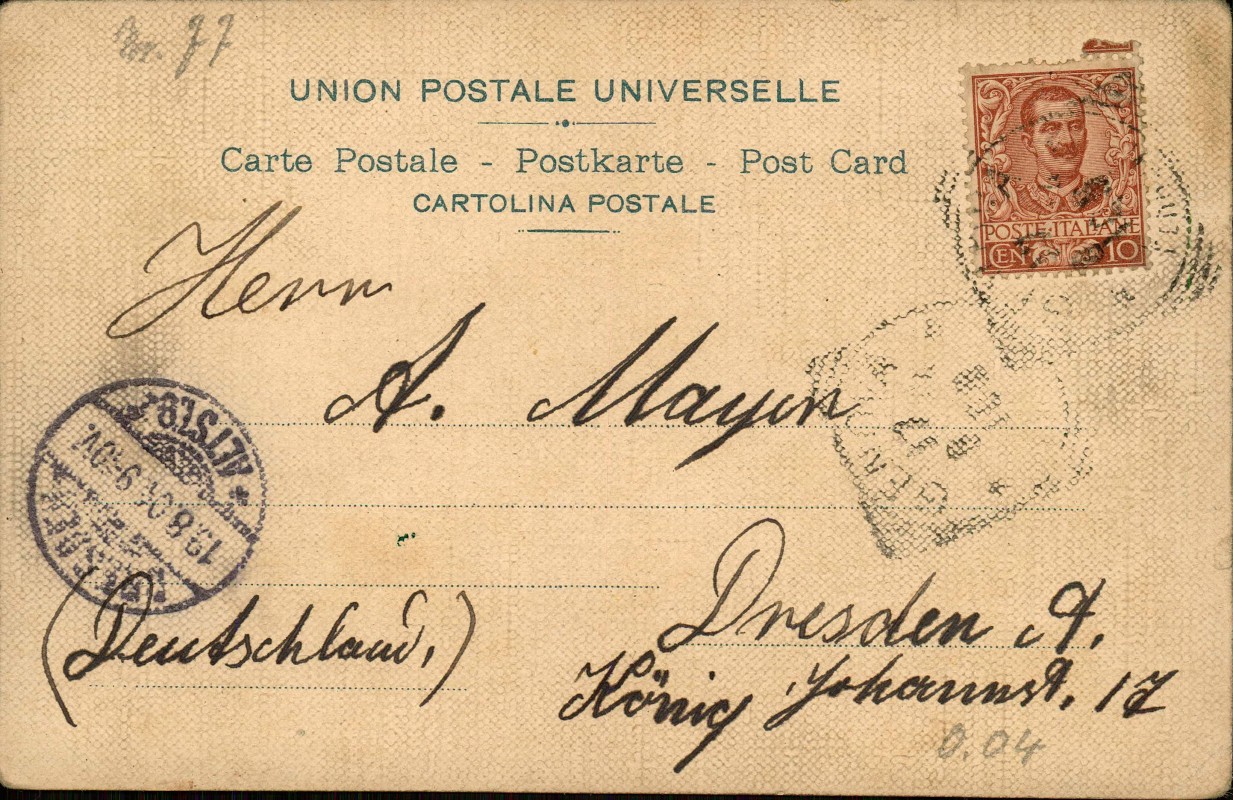 77
UNION POSTALE UNIVERSELLE
Carte Postale - Postkarte - Post Card
CARTOLINA POSTALE
POSTE·ITALIANE
CEN 10
Herrn
A. Mayer
GENOVA
DRESDEN
ALTST.
19.8.01. 9-10V.
(Deutschland,)
Dresden A.
König Johannst. 17
0.04